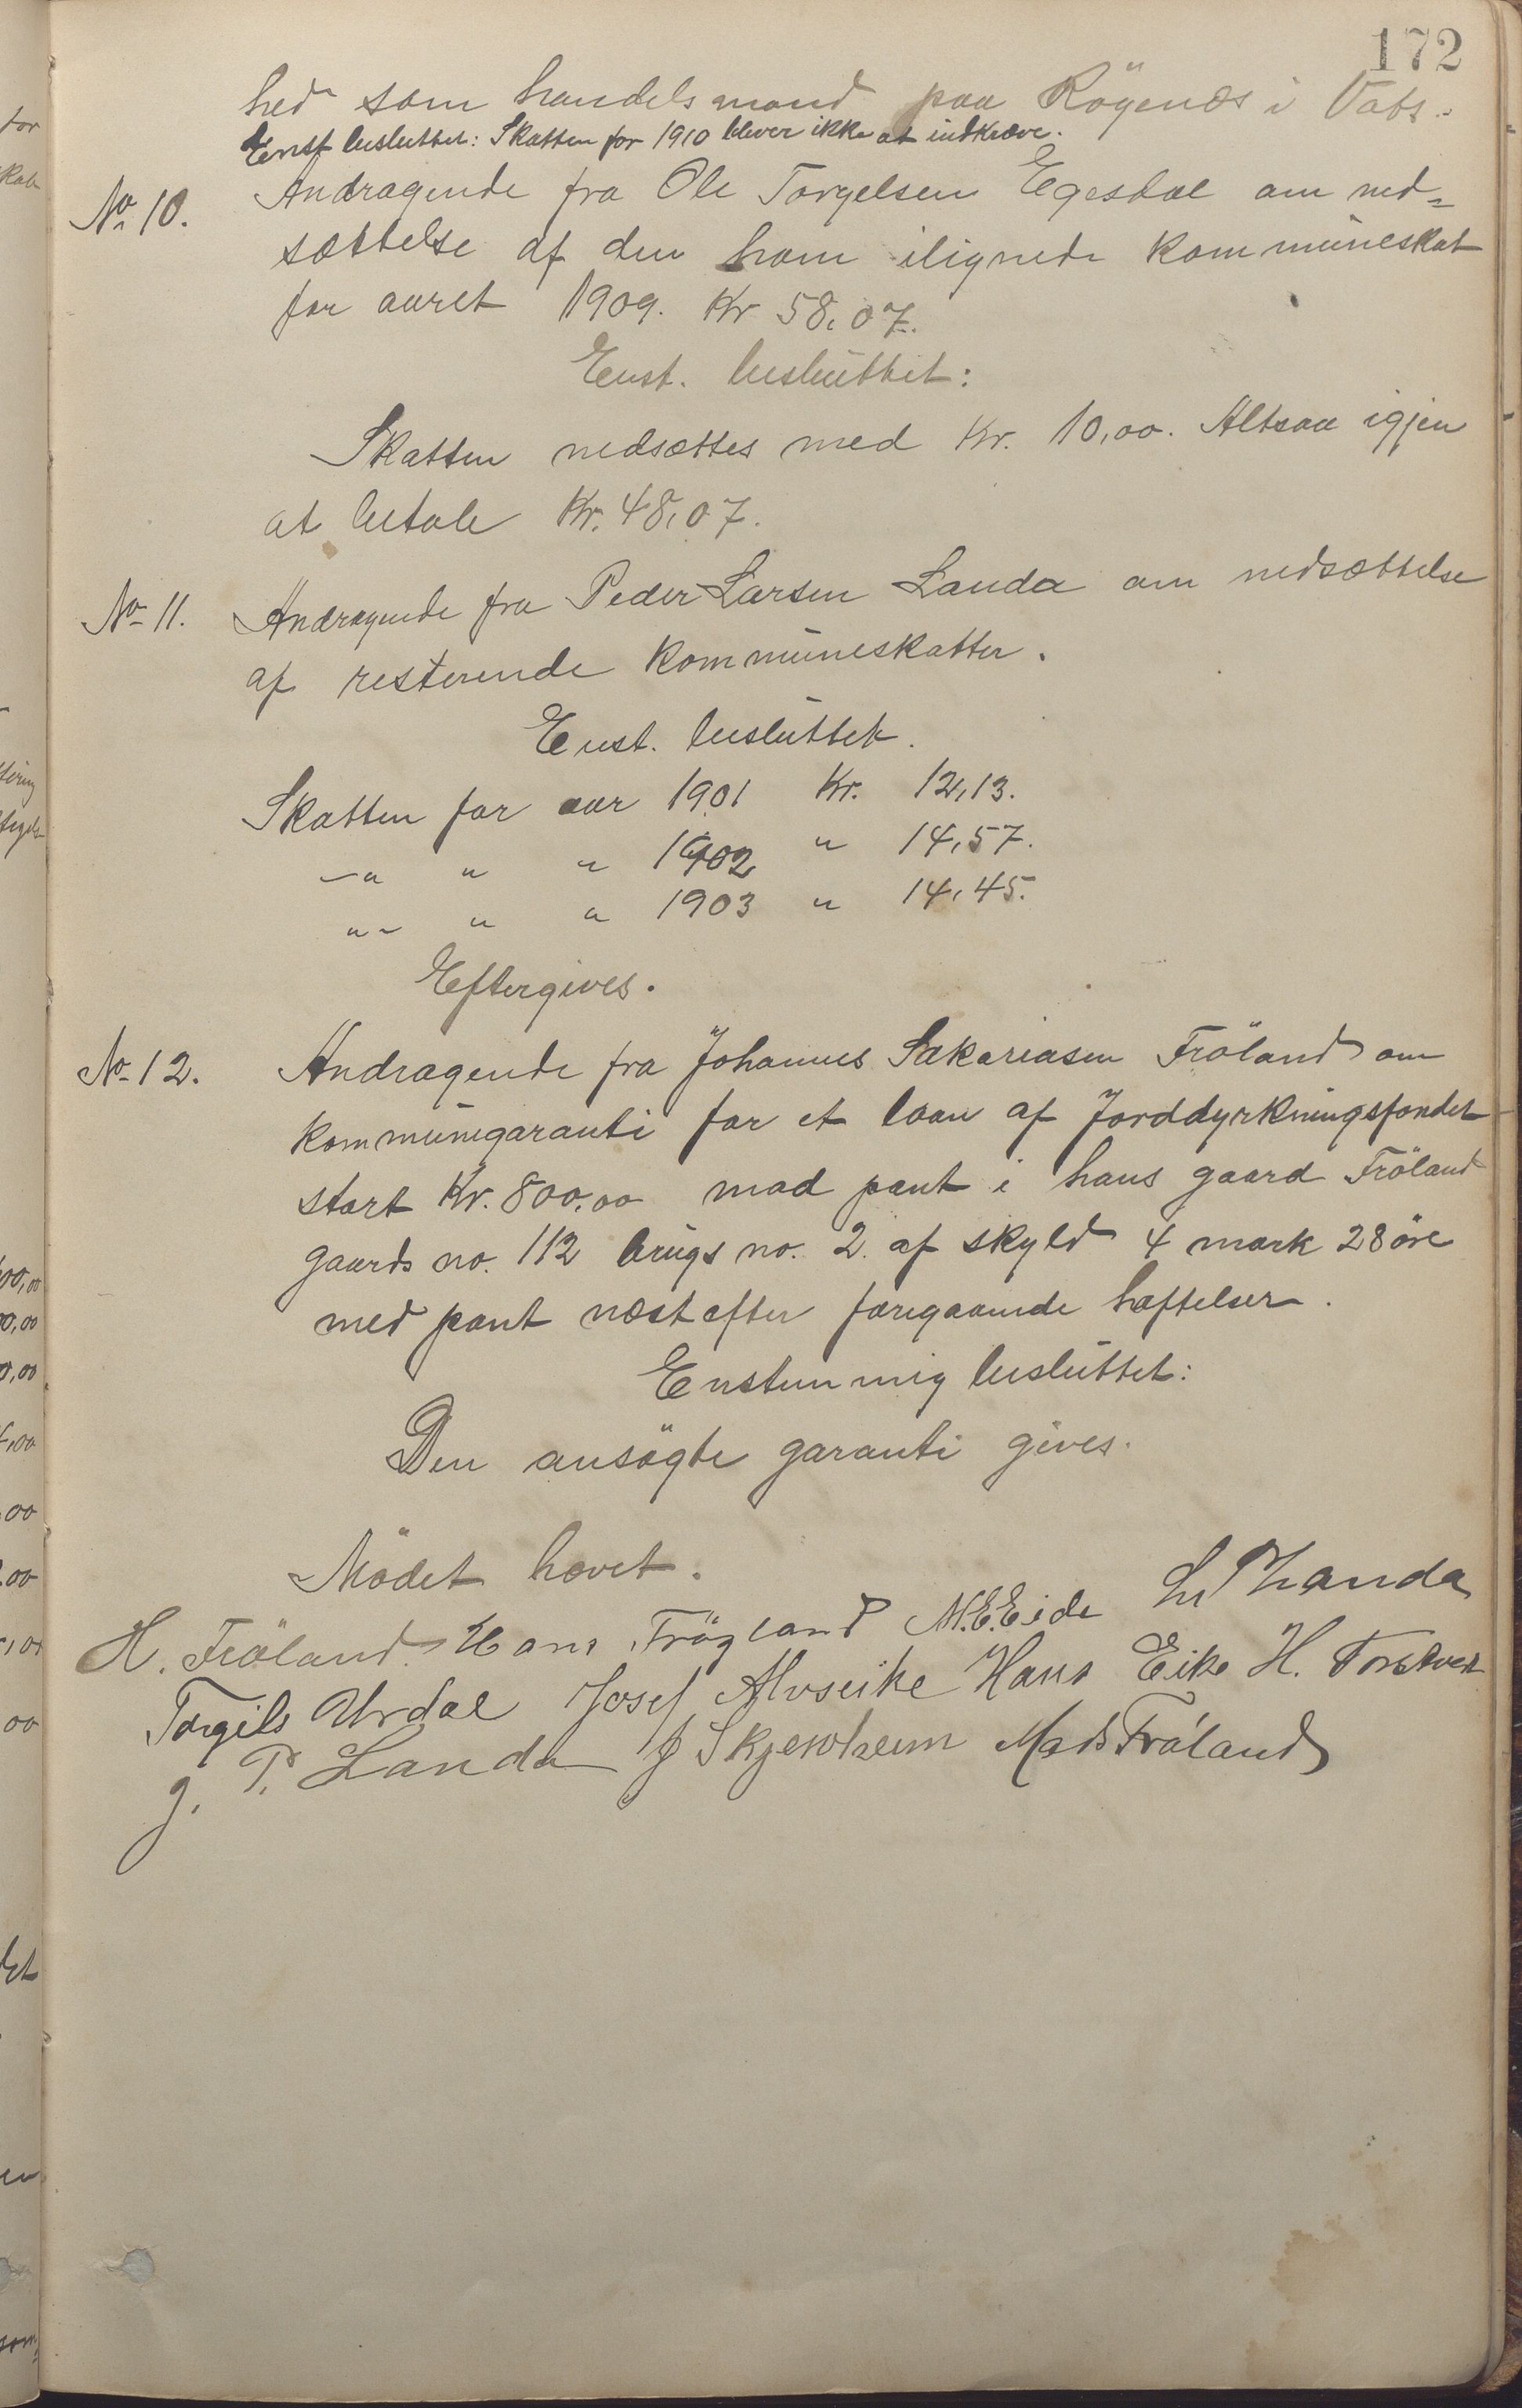 172
hed som handelsmand paa Röyenæs i Vats.
Enst besluttet: Skatten for 1910 blever ikke at indkræve.
No 10. Andragende fra Ole Torgelsen Egesdal om ned=
sættelse af den ham ilignede kommuneskat
for aaret 1909. Kr 58,07.
Enst. besluttet:
Skatten nedsættes med Kr. 10,00. Altsaa igjen
at betale Kr. 48,07.
No 11. Andragende fra Peder Larsen Landa om nedsættelse
af resterende kommuneskatter.
Enst. besluttet.
Skatten for aar 1901 Kr. 12,13.
-"- " " 1902 " 14,57.
"- " " 1903 " 14,45.
Eftergives.
No 12. Andragende fra Johannes Sakariasen Fröland om
kommunegaranti for et laan af Jorddyrkningsfondet
stort Kr. 800,00 mod pant i hans gaard Fröland
gaards no. 112 brugs no. 2 af skyld 4 mark 28 öre
med pant næst efter foregaaende hæftelser.
Enstemmig besluttet:
Den ansögte garanti gives.
Mödet hævet.
H. Fröland Hans Frögland M.E.Eide Landa
Torgils Urdal Josef Alvseike Hans Eike H. Torstveit
J. P. Landa J Skjervheim Mads Fröland